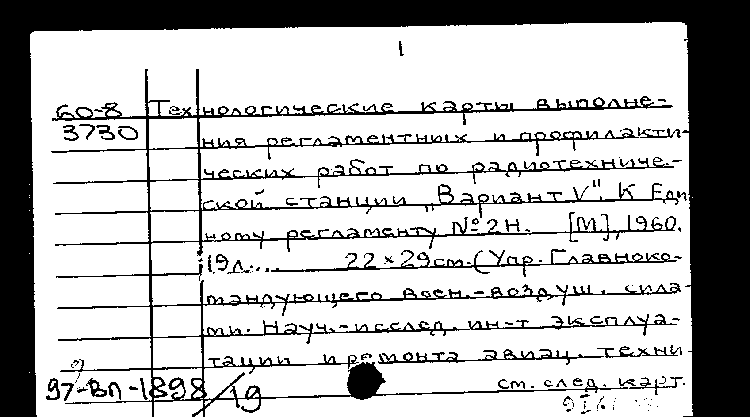 1
60-8 Технологические карты выполне-
3730 ния регламентных и профилакти-
ческих работ по радиотехниче-
ской станции „Вариант V". К Еди
ному регламенту № 2Н. [М], 1960.
19л.... 22×29см. (Упр. Главноко-
мандующего воен.-воздуш. сила-
ми. Науч.-исслед. ин-т эксплуа-
тации и ремонта авиац. техни-
97-ВП-1898/19 см. след. карт.